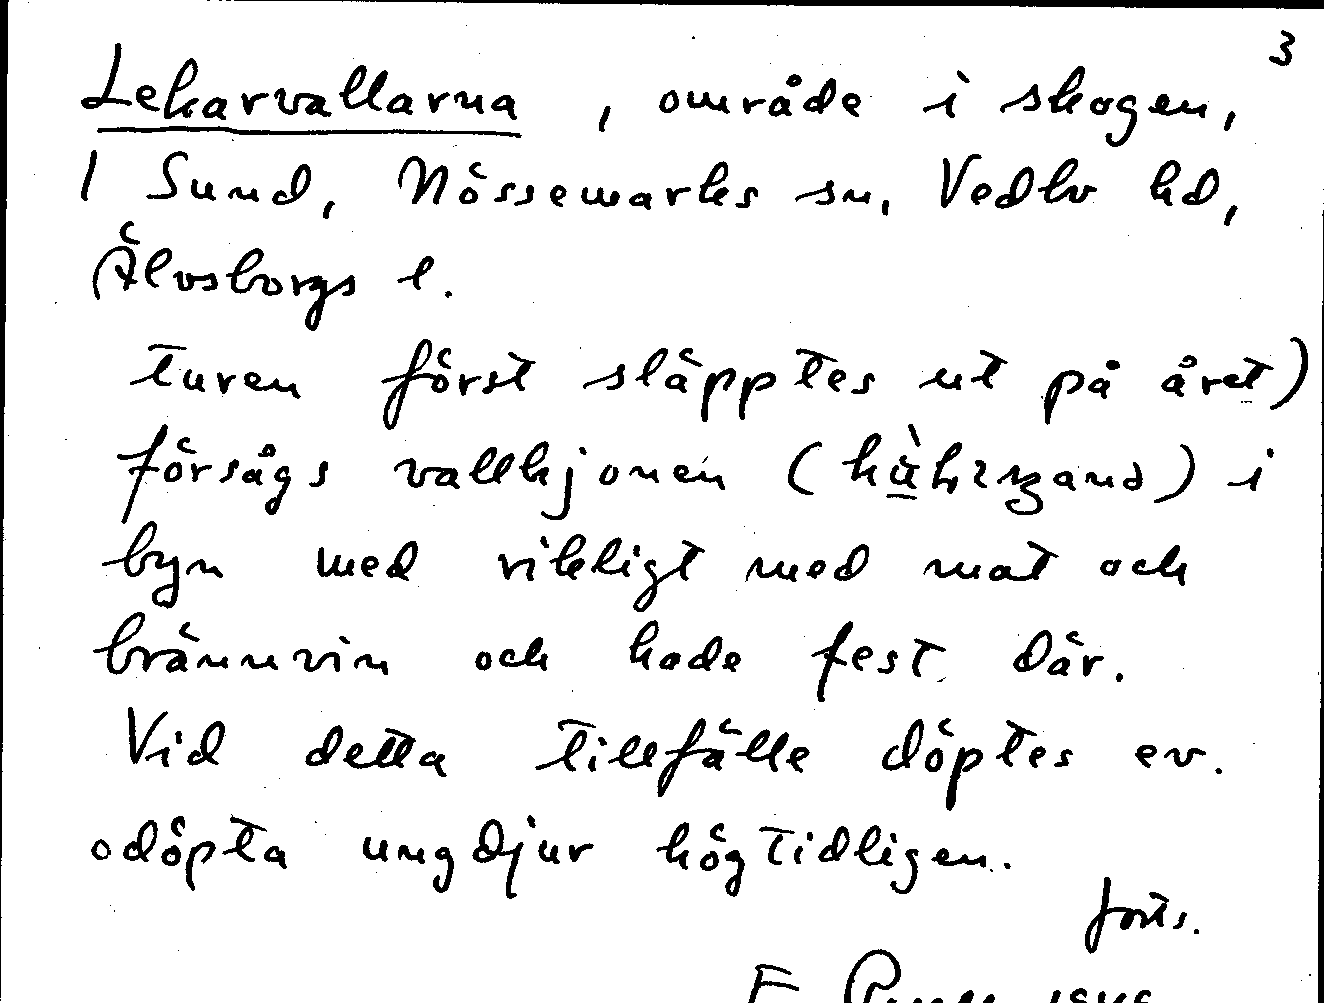 3
Lekarvallarna, område i skogen,
/ Sund, Nössemarks sn, Vedbo hd,
Älvsborgs l.
turen först släpptes ut på året)
försågs vallhjonen ( ) i
byn med rikligt med mat och
brännvin och hade fest där.
Vid detta tillfälle döptes ev.
odöpta ungdjur högtidligen.
forts.